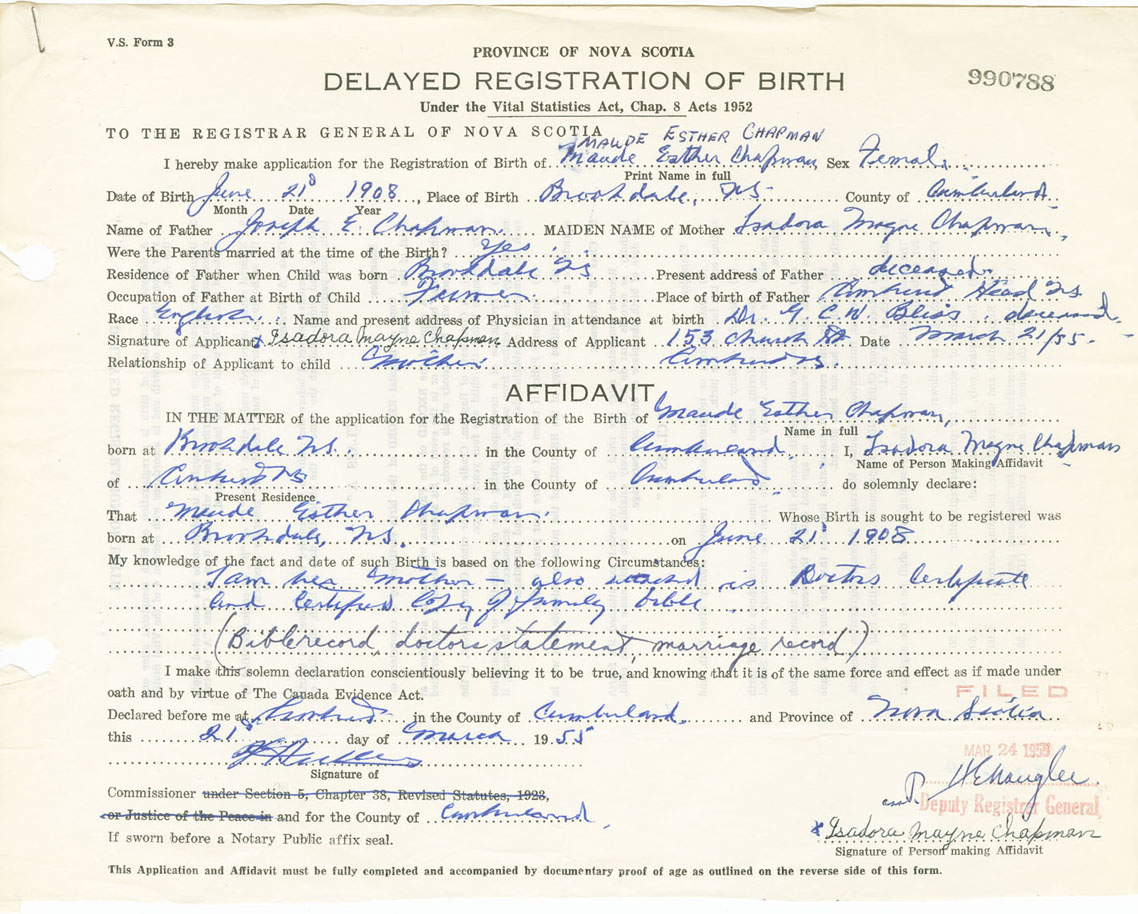 V.S. Form 3
PROVINCE OF NOVA SCOTIA
DELAYED REGISTRATION OF BIRTH
990788
Under the Vital Statistics Act, Chap. 8 Acts 1952
TO THE REGISTRAR GENERAL OF NOVA SCOTIA
MAUDE ESTHER CHAPMAN
I hereby make application for the Registration of Birth of Maude Esther Chapman, Sex Female
Print Name in full
Date of Birth June 21 1908, Place of Birth Brookdale, NS. County of Cumberland
Month Date Year
Name of Father Joseph E. Chapman MAIDEN NAME of Mother Isadora Mayne Chapman,
Were the Parents married at the time of the Birth? Yes
Residence of Father when Child was born Brookdale NS Present address of Father deceased
Occupation of Father at Birth of Child Farmer Place of birth of Father Amherst Head NS
Race English Name and present address of Physician in attendance at birth Dr. G. C. W. Bliss deceased
Signature of Applicant x Isadora Mayne Chapman Address of Applicant 153 Church St Date March 21/55.
Relationship of Applicant to child Mother Amherst NS.
AFFIDAVIT
IN THE MATTER of the application for the Registration of the Birth of Maude Esther Chapman,
Name in full
born at Brookdale NS. in the County of Cumberland, I, Isadora Mayne Chapman
Name of Person Making Affidavit
of Amherst NS in the County of Cumberland, do solemnly declare:
Present Residence
That Maude Esther Chapman Whose Birth is sought to be registered was
born at Brookdale, NS. on June 21 1908
My knowledge of the fact and date of such Birth is based on the following Circumstances:
I am her Mother - also attached is Doctors Certificate
and Certified Copy of family bible
(Bible record, doctors statement, marriage record)
I make this solemn declaration conscientiously believing it to be true, and knowing that it is of the same force and effect as if made under
oath and by virtue of The Canada Evidence Act.
FILED
Declared before me at Amherst in the County of Cumberland and Province of Nova Scotia
this 21 day of March 1955
MAR 24 1955
Signature of
Deputy Registrar General
Commissioner under Section 5, Chapter 38, Revised Statutes, 1923,
or Justice of the Peace in and for the County of Cumberland
x Isadora Mayne Chapman
If sworn before a Notary Public affix seal.
Signature of Person making Affidavit
This Application and Affidavit must be fully completed and accompanied by documentary proof of age as outlined on the reverse side of this form.